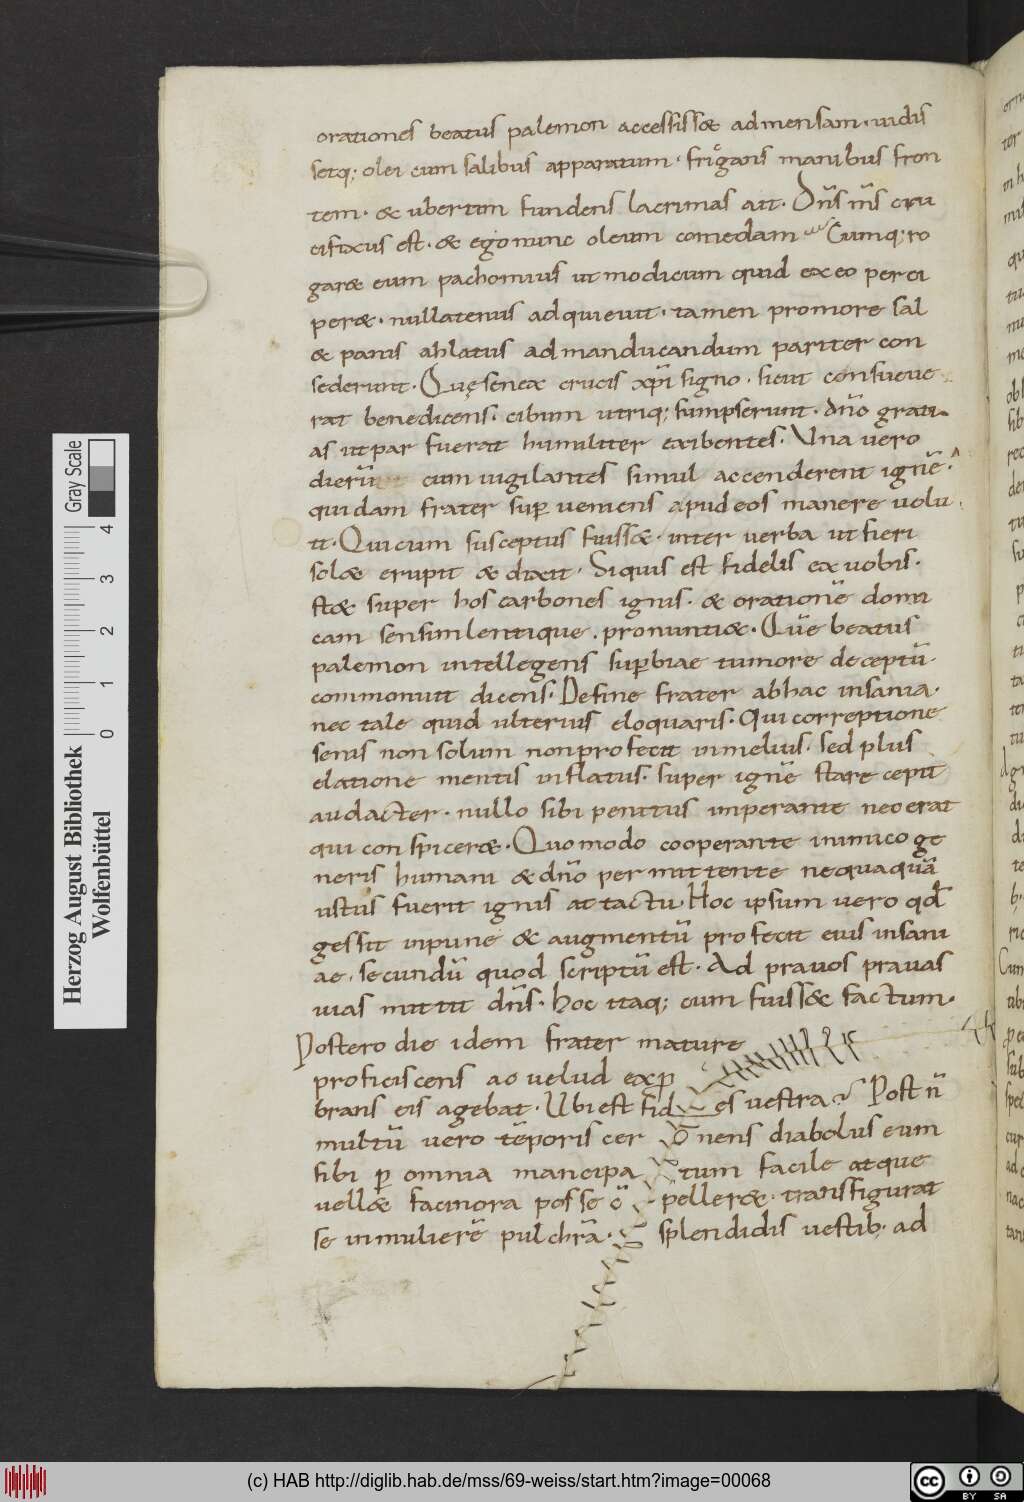 orationes beatus palemon accessiss& admensam. uidis
setq; olei cum salibus apparatum. frigans manibus fron
tem. & ubertim fundens lacrimas ait. Dn̄s n̄s cru
cifixus est. & ego nunc oleum comedam Cumq; ro
gar& eum pachomius ut modicum quid ex eo perci
per&. nullatenus adquieuit. tamen promore sal
& panis ablatus admanducandum pariter con
sederunt. Quę senex crucis xp̄i signo. sicut consueue
rat benedicens. cibum utriq; sumpserunt. dn̄o grati
as ut par fuerat humiliter exibentes. Una vero
dierū cum uigilantes simul accenderent ignē.
quidam frater sup ueniens apud eos manere uolu
it. Qui cum susceptus fuiss& inter verba ut fieri
sol& erupit & dixit. Siquis est fidelis ex uobis.
st& super hos carbones ignis. & orationē domi
cam sensim lentique. pronunti&. Quē beatus
palemon intellegens supbiae tumore deceptū.
commonuit dicens. Define frater abhac insania.
nec tale quid ulterius eloquaris. Qui correptione
senis non solum nonprofecit inmelius. sed plus
elatione mentis inflatus. super ignē stare cepit
audacter. nullo sibi penitus imperante nec erat
qui conspicer&. Quomodo cooperante inimico ge
neris humani & dn̄o permittente nequaquā
ustus fuerit ignis attactu. Hoc ipsum vero qd̄
gessit inpune & augmentū profecit eius insani
ae. secundū quod scriptū est. Ad prauos prauas
uias mittit dn̄s. hoc itaq; cum fuiss& factum.
Postero die idem frater mature
proficiscens ac velud exp
brans eis agebat. Ubi est fid es vestra? Post n̄
multū vero tēporis cer nens diabolus eum
sibi p omnia mancipa tum facile atque
uell& facinora posse ō peller&. transfigurat
se inmulierē pulchrā. splendidis vestib; ad
Herzog August Bibliothek
Wolfenbüttel
Gray Scale
0 1 2 3 4
(c) HAB http://diglib.hab.de/mss/69-weiss/start.htm?image=00068
cc BY SA